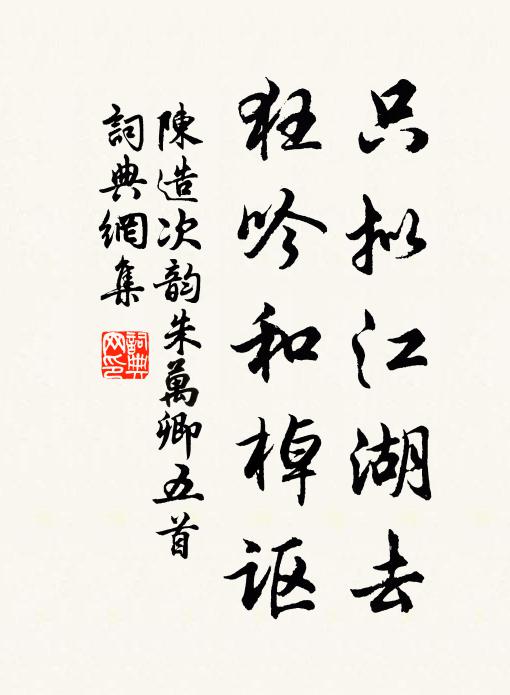 只拟江湖去
狂吟和棹讴
陳造次韵朱萬卿五首
詞典網集
詞典网印